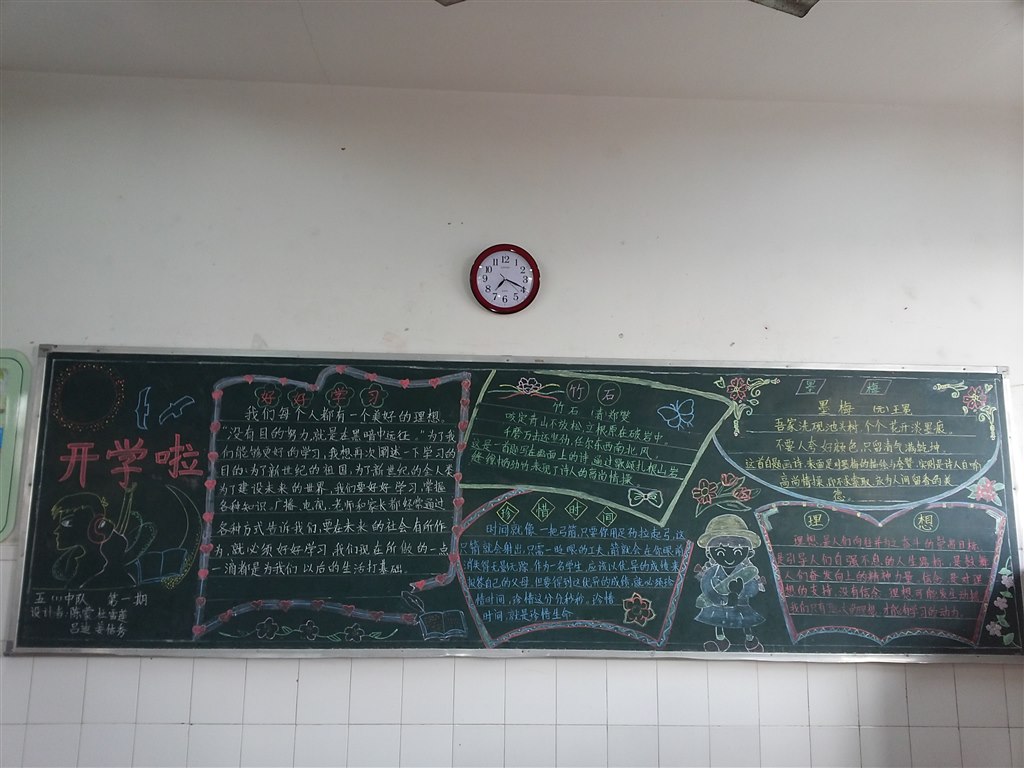 12
1
2
3
4
5
6
7
8
9
10
11
开学啦
五(1)中队 第一期
设计者:陈萱
好好学习
我们每个人都有一个美好的理想。
"没有目的努力,就是在黑暗中远征。"为了我
们能够更好的学习,我想再次阐述一下学习的
目的:为了新世纪的祖国,为了新世纪的全人类
为了建设未来的世界,我们要好好学习,掌握
各种知识。广播、电视、老师和家长都经常通过
各种方式告诉我们,要在未来的社会有所作
为,就必须好好学习。我们现在所做的一点
一滴都是为我们以后的生活打基础。
竹石
竹石 (清)郑燮
咬定青山不放松,立根原在破岩中。
千磨万击还坚劲,任尔东西南北风。
这是一首题写在画面上的诗,通过歌颂扎根山岩
现了诗人的高尚情操。
珍惜时间
时间就像一把弓箭,只要你用足劲拉起弓,这
只箭就会射出,只需一眨眼的工夫,箭就会在你眼前
消失得无影无踪。作为一名学生,应该以优异的成绩来
报答自己的父母,但要得到这优异的成绩,就必须珍
惜时间,珍惜这分分秒秒。珍惜
时间,就是珍惜生命
墨梅
墨梅 (元)王冕
吾家洗砚池头树,个个花开淡墨痕。
不要人夸好颜色,只留清气满乾坤。
高尚情操
理想
理想是人们的
是引导人们自强不息的人生路标,是鼓舞
人们奋发向上的精神力量。信念是对理
想的支持,没有信念,理想可能失去动机
我们只有
才能有学习的动力。